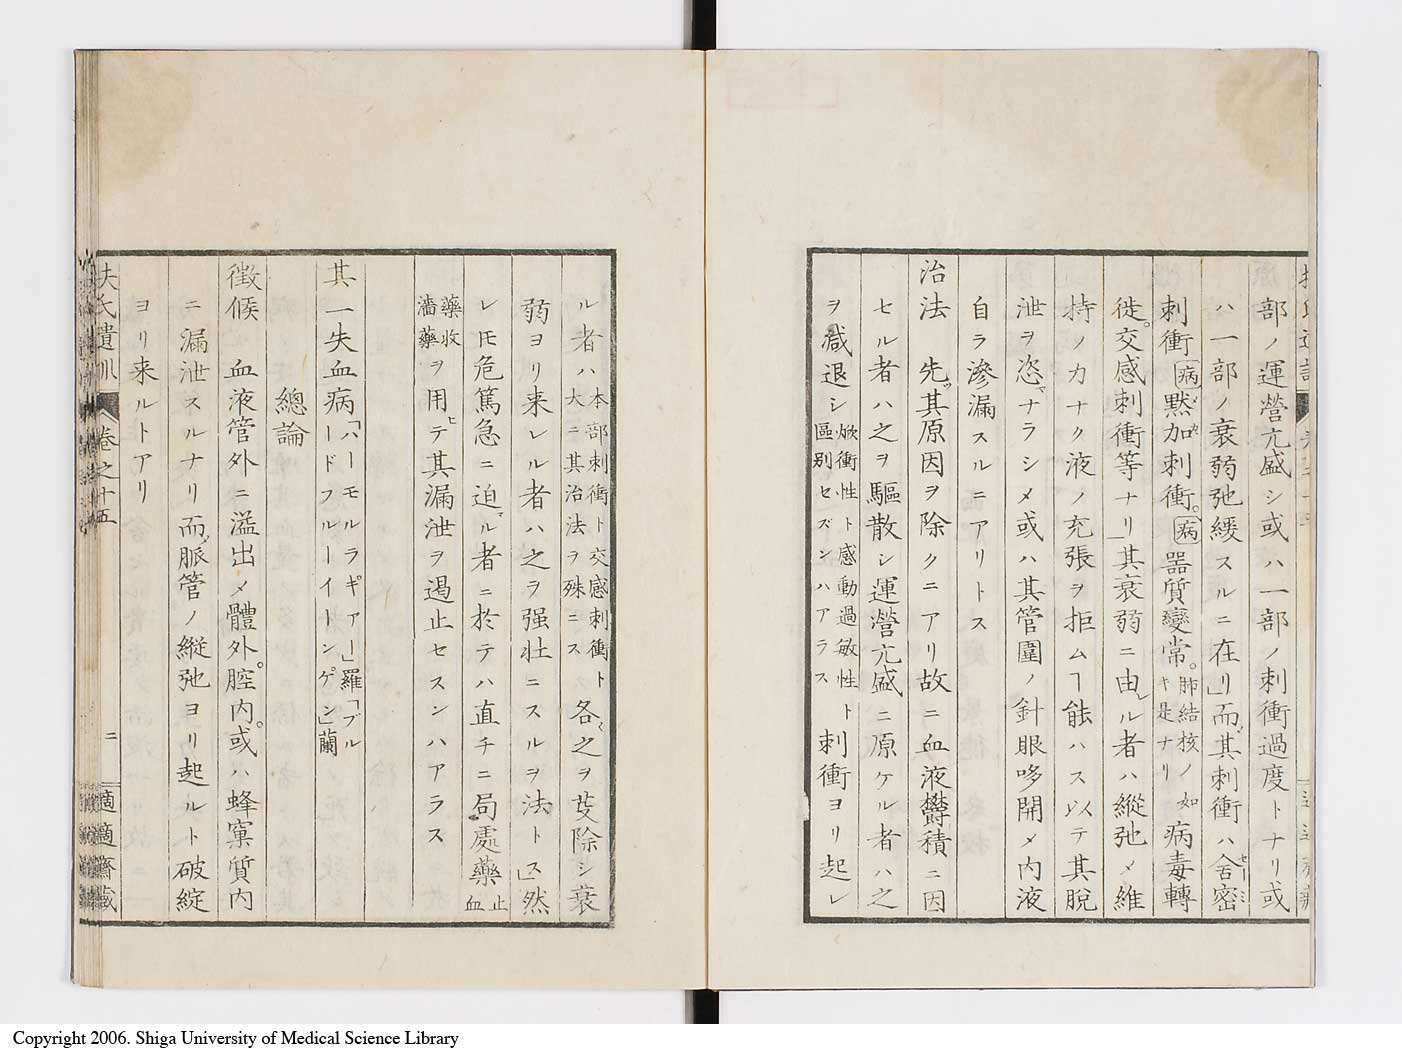 部ノ運營亢盛シ或ハ一部ノ刺衝過度トナリ或
ハ一部ノ衰弱弛緩スルニ在リ」而其刺衝ハ舍密
刺衝病黙加刺衝。病器質變常。肺結核ノ如キ是ナリ病毒轉
徙。交感刺衝等ナリ」其衰弱ニ由ル者ハ縱弛メ維
持ノカナク液ノ充張ヲ拒ムヿ能ハス以テ其脫
泄ヲ恣ナラシメ或ハ其管圍ノ針眼哆開メ内液
自ラ滲漏スルニアリトス
治法 先其原因ヲ除クニアリ故ニ血液欝積ニ因
セル者ハ之ヲ驅散シ運營亢盛ニ原ケル者ハ之
ヲ減退シ焮衝性ト感動過敏性ト區別セズンハアラス刺衝ヨリ起レ
ル者ハ本部刺衝ト交感刺衝ト大ニ其治法ヲ殊ニス各之ヲ芟除シ衰
弱ヨリ来レル者ハ之ヲ强壯ニスルヲ法トス」然
レ𪜈危篤急ニ迫ル者ニ於テハ直チニ局處藥止血
藥收濇藥ヲ用テ其漏泄ヲ遏止セスンハアラス
其一失血病「ハーモルラギアー」羅「ブルードフルーイトンゲン」蘭
總論
徴候 血液管外ニ溢出メ體外。腔内。或ハ蜂窠質内
ニ漏泄スルナリ而脈管ノ縱弛ヨリ起ルト破綻
ヨリ来ルトアリ
扶氏遺訓 卷之十五 二 適適齋藏